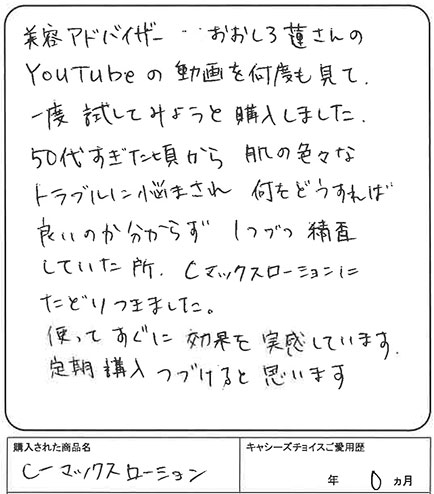 美容アドバイザー…おおしろ蓮さんの
YouTubeの動画を何度も見て.
一度試してみようと購入しました.
50代すぎた頃から 肌の色々な
トラブルに悩まされ 何をどうすれば
良いのか分からず 1つづつ 精査
していた所. Cマックスローションに
たどりつきました。
使ってすぐに 効果を実感しています.
定期購入つづけると思います
購入された商品名
キャシーズチョイスご愛用歴
C-マックスローション
年 0 ヵ月